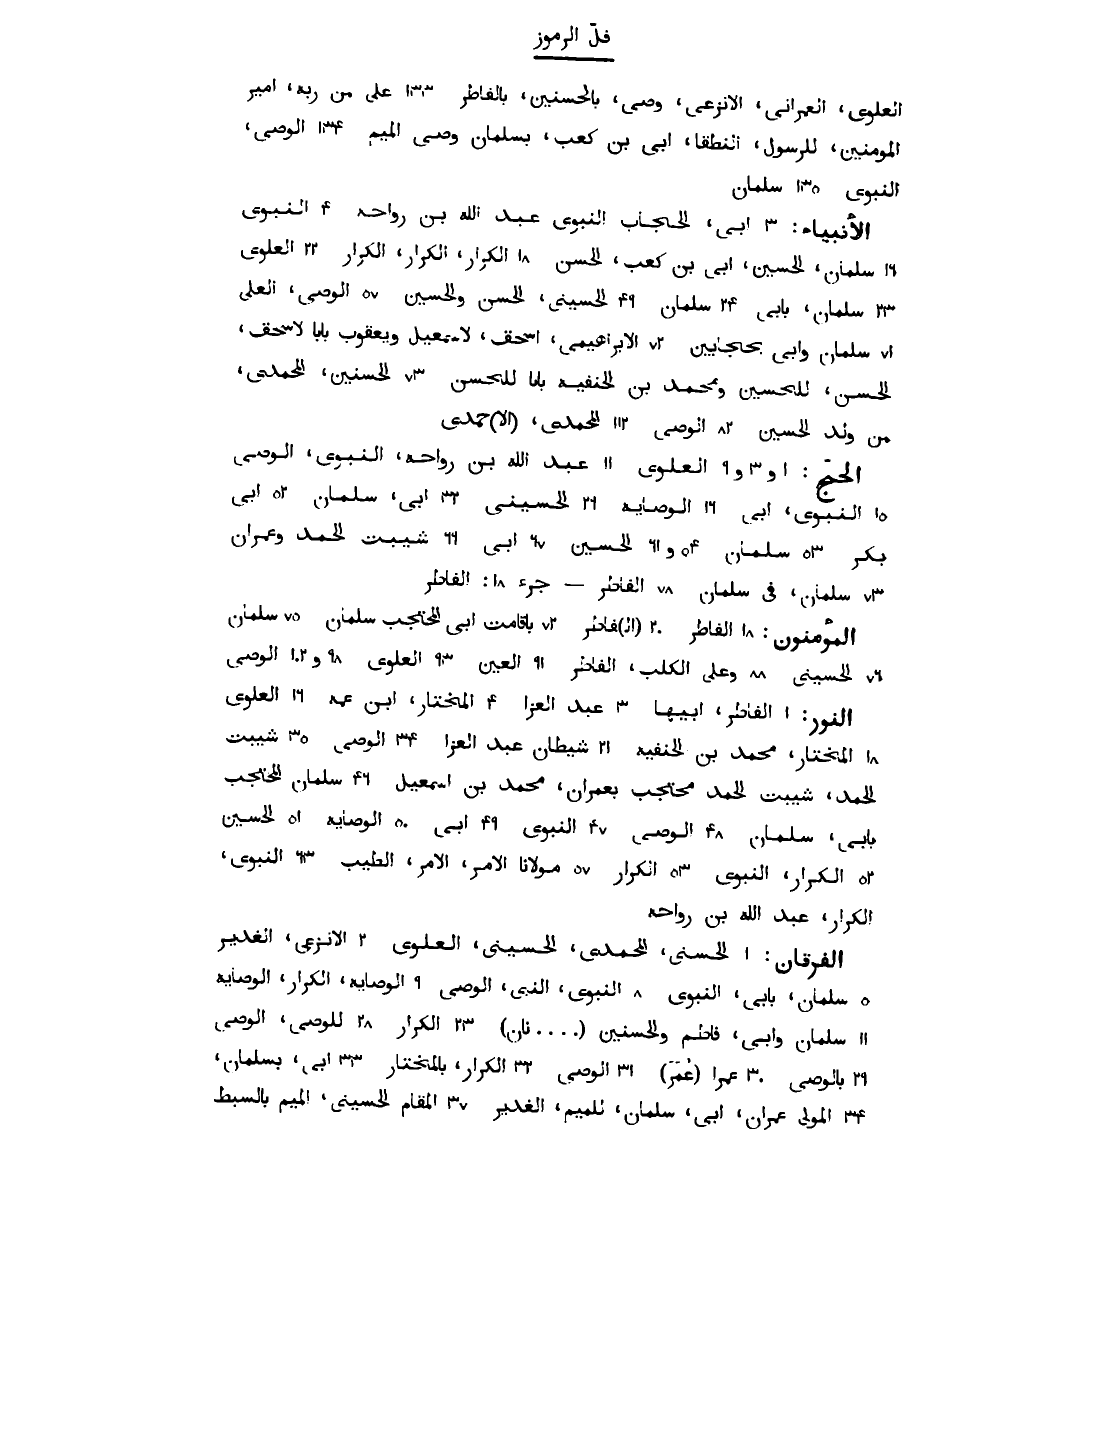 فلّ الرموز
العلوى، العمرانى، الانزعى، وصى، بالحسنين، بالفاطر ۱۳۳ على من ربه، امير
المومنين، للرسول، النطقا، ابى بن كعب، بسلمان وصى الميم ۱۳۴ الوصى،
النبوى ۱۳۵ سلمان
الأنبياء: ۳ ابى، الحجاب النبوى عبد الله بن رواحه ۴ النبوى
۱٦ سلمان، الحسين، ابى بن كعب، الحسن ۱۸ الكرار، الكرار، الكرار ۲۲ العلوى
۲۳ سلمان، بابى ۲۴ سلمان ۴۹ الحسينى، الحسن والحسين ۵۷ الوصى، العلى
۷۱ سلمان وابى بحجابين ۷۲ الابراعيمى، اسحق، لاسمعيل ويعقوب بابا لاسحق،
الحسن، للحسين ومحمد بن الحنفيه بابا للحسن ۷۳ الحسنين، المحمدى،
من ولد الحسين ۸۲ الوصى ۱۱۲ المحمدى، (الا)حمدى
الحجّ: ۱ و ۳ و ۹ العلوى ۱۱ عبد الله بن رواحه، النبوى، الوصى
۱۵ النبوى، ابى ۱٦ الوصايه ۲٦ الحسينى ۳۲ ابى، سلمان ۵۲ ابى
بكر ۵۳ سلمان ۵۴ و ٦۱ الحسين ٦۷ ابى ٦٦ شيبت الحمد وعمران
۷۳ سلمان، فى سلمان ۷۸ الفاطر — جزء ۱۸: الفاطر
المؤمنون: ۱۸ الفاطر ۲۰ (ال)فاطر ۷۲ باقامت ابى المحتجب سلمان ۷۵ سلمان
۷٦ الحسينى ۸۸ وعلى الكلب، الفاطر ۹۱ العين ۹۳ العلوى ۹۸ و ۱۰۲ الوصى
النور: ۱ الفاطر، ابيها ۳ عبد العزا ۴ المختار، ابن عمه ۱٦ العلوى
۱۸ المختار، محمد بن الحنفيه ۲۱ شيطان عبد العزا ۳۴ الوصى ۳۵ شيبت
الحمد، شيبت الحمد محتجب بعمران، محمد بن اسمعيل ۴٦ سلمان المحتجب
بابى، سلمان ۴۸ الوصى ۴۷ النبوى ۴۹ ابى ۵۰ الوصايه ۵۱ الحسين
۵۲ الكرار، النبوى ۵۳ الكرار ۵۷ مولانا الامر، الامر، الطيب ٦۳ النبوى،
الكرار، عبد الله بن رواحه
الفرقان: ۱ الحسنى، المحمدى، الحسينى، العلوى ۲ الانزعى، الغدير
۵ سلمان، بابى، النبوى ۸ النبوى، النبى، الوصى ۹ الوصايه، الكرار، الوصايه
۱۱ سلمان وابى، فاطم والحسنين (....نان) ۲۳ الكرار ۲۸ للوصى، الوصى
۲۹ بالوصى ۳۰ عمرا (عُمَرَ) ۳۱ الوصى ۳۲ الكرار، بالمختار ۳۳ ابى، بسلمان،
۳۴ المولى عمران، ابى، سلمان، للميم، الغدير ۳۷ المقام الحسينى، الميم بالسبط